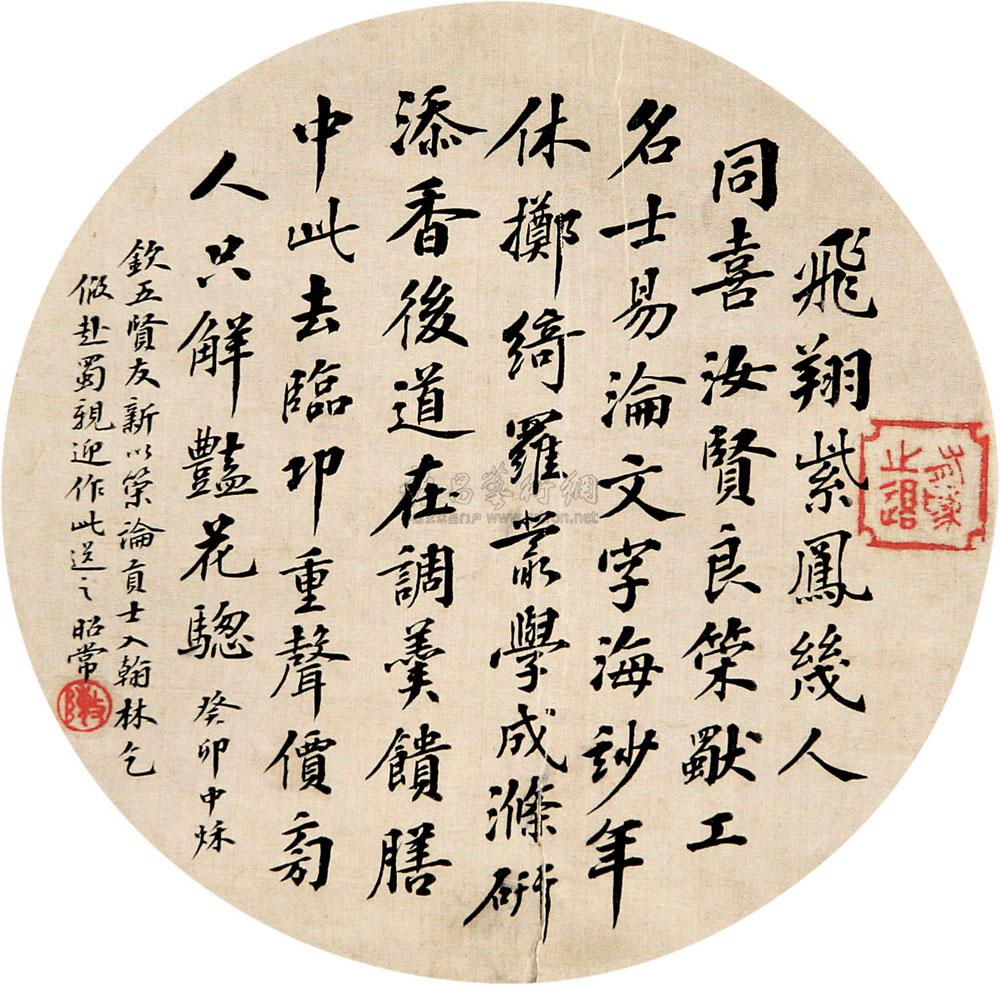 飛翔紫鳳幾人
同喜汝賢良策獻工
名士易淪文字海妙年
休擲綺羅叢學成滌研
添香後道在調羹饋膳
中此去臨邛重聲價旁
人只解豔花驄
癸卯中秌
欽五賢友新以策論貢士入翰林乞
假赴蜀親迎作此送之昭常
昌藝術網
www.artron.net